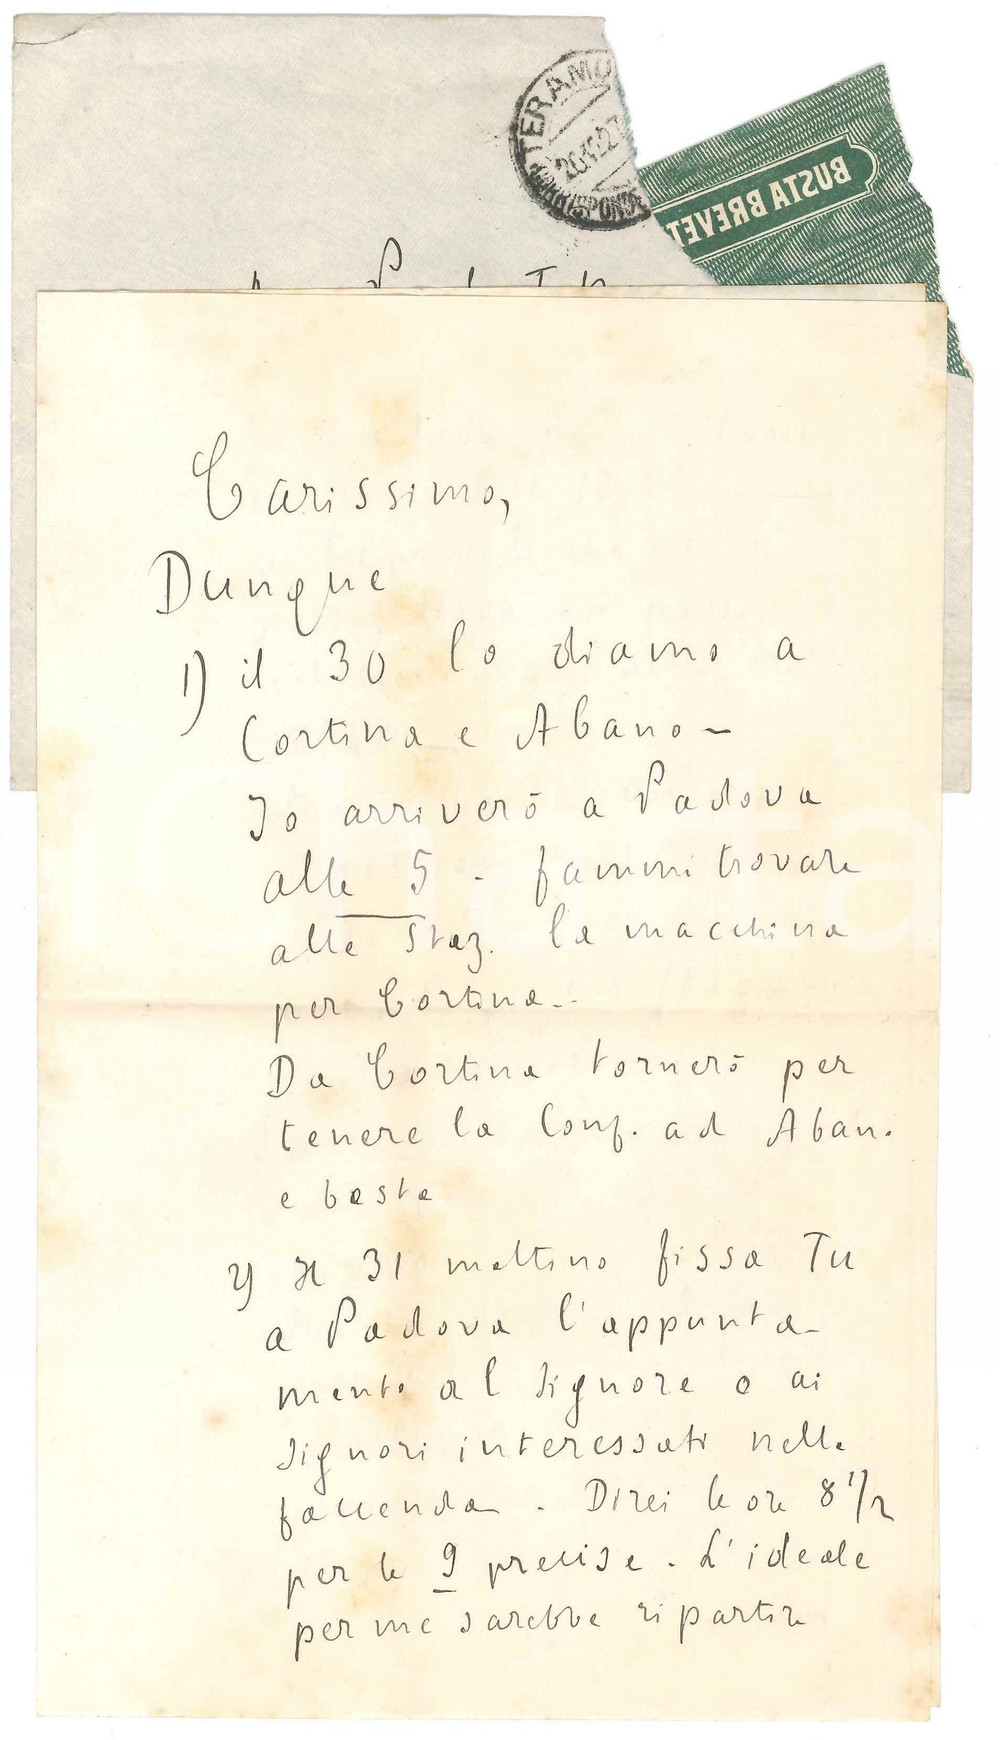 TERAMO
CORRISPONDE
BUSTA BREVET
Carissimo,
Dunque
1) il 30 lo diamo a
Cortina e Abano -
Io arriverò a Padova
alle 5 - fammi trovare
alla Staz. la macchina
per Cortina -
Da Cortina tornerò per
tenere la Conf. ad Aban.
e basta
2) Il 31 mattino fissa Tu
a Padova l'appunta-
mento al Signore o ai
Signori interessati nella
faccenda - Direi le ore 8 1/2
per le 9 precise. L'ideale
per me sarebbe ripartire